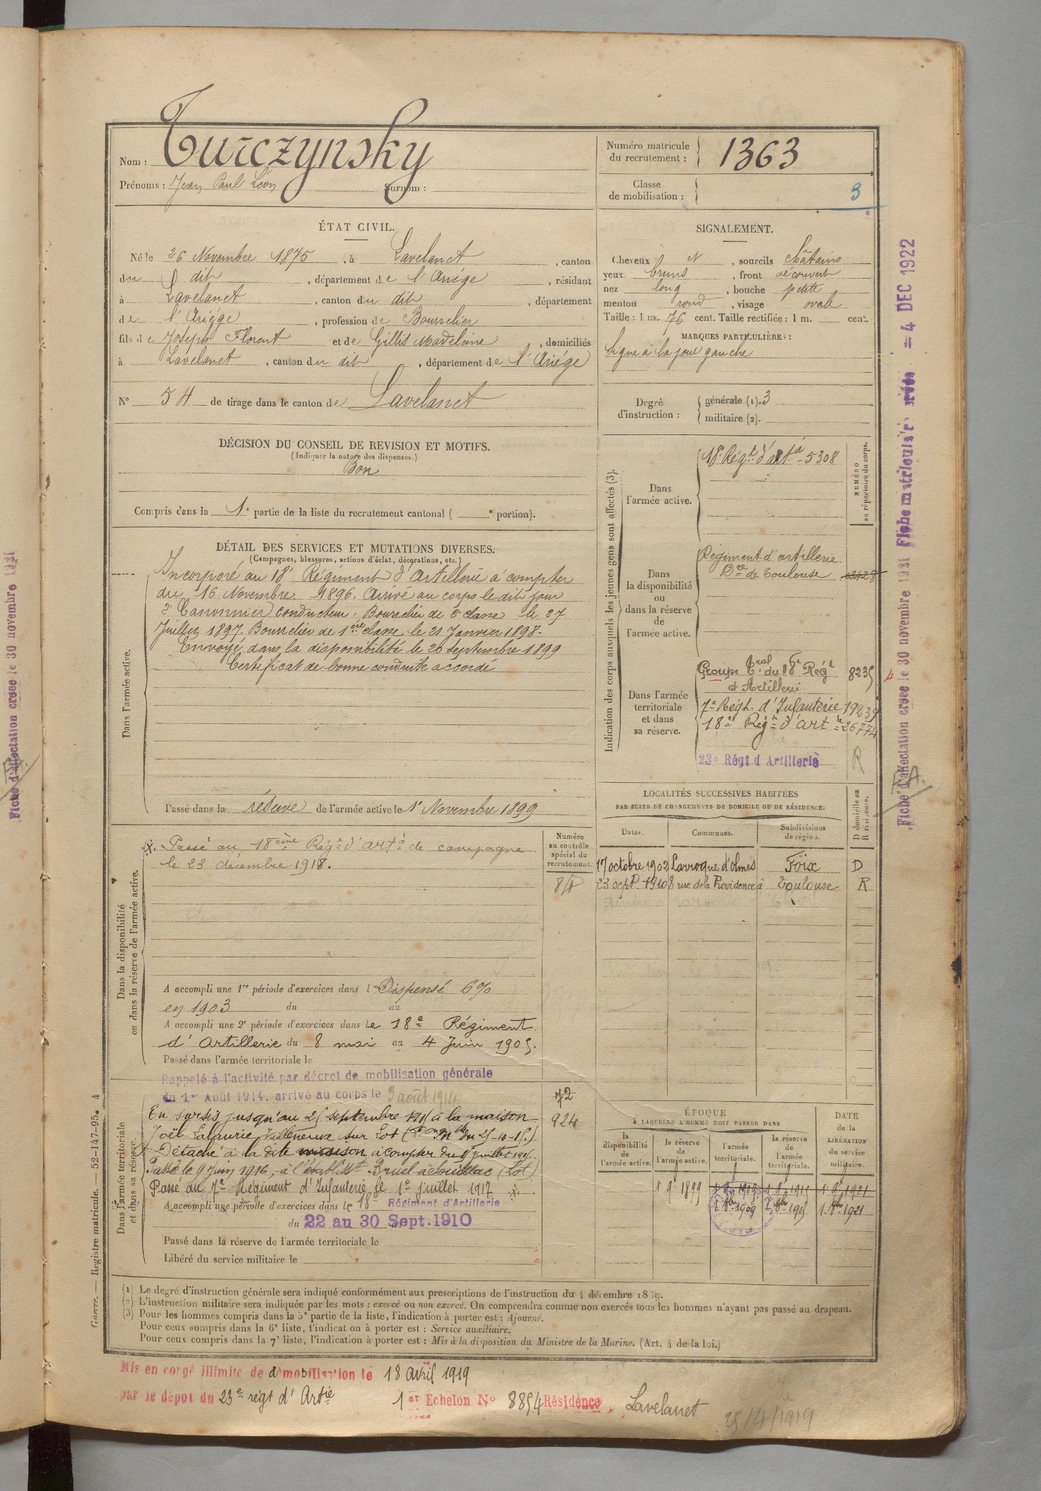 Nom : Turczynsky
Prénoms : Jean Paul Léon Surnom :
Numéro matricule du recrutement : 1363
Classe de mobilisation :
3
ÉTAT CIVIL.
Né le 26 Novembre 1875, à Lavelanet, canton
du dit, département de l'Ariège, résidant
à Lavelanet, canton du dit, département
de l'Ariège, profession de Bourrelier
fils de Joseph Florent et de Gillis Madeleine, domiciliés
à Lavelanet, canton du dit, département de l'Ariége
N° 54 de tirage dans le canton de Lavelanet
SIGNALEMENT.
Cheveux N, sourcils châtains
yeux bruns, front découvert
nez long, bouche petite
menton rond, visage ovale
Taille : 1 m. 76 cent. Taille rectifiée : 1 m. cent.
MARQUES PARTICULIÈRES :
Signe à la joue gauche
Degré d'instruction : générale (1). 3
militaire (2).
DÉCISION DU CONSEIL DE REVISION ET MOTIFS.
(Indiquer la nature des dispenses.)
Bon
Compris dans la 1e partie de la liste du recrutement cantonal ( e portion).
DÉTAIL DES SERVICES ET MUTATIONS DIVERSES.
(Campagnes, blessures, actions d'éclat, décorations, etc.)
Dans l'armée active.
Incorporé au 18e Régiment d'Artillerie à compter
du 16 Novembre 1896. Arrivé au corps le dit jour
2e Canonnier conducteur. Bourrelier de 2e classe le 27
Juillet 1897. Bourrelier de 1ère classe le 21 Janvier 1898.
Envoyé dans la disponibilité le 20 Septembre 1899
Certificat de bonne conduite accordé
Passé dans la réserve de l'armée active le 1er Novembre 1899
Indication des corps auxquels les jeunes gens sont affectés (3).
NUMÉRO au répertoire du corps.
Dans l'armée active.
18e Régt d'artie 5308
Dans la disponibilité ou dans la réserve de l'armée active.
Régiment d'artillerie
de Toulouse
Dans l'armée territoriale et dans sa réserve.
Groupe tral du 18e Régt d'Artillerie 8235
7e Régt. d'Infanterie 19239
18e Régt d'Artie 26774
23e Régt d'Artillerie R
Dans la disponibilité ou dans la réserve de l'armée active.
Numéro au contrôle spécial du recrutement.
Passé au 18ème Régt d'artie de campagne
le 23 décembre 1918.
A accompli une 1re période d'exercices dans l Dispensé 6%
en 1903 du au
A accompli une 2e période d'exercices dans le 18e Régiment
d'Artillerie du 8 mai au 4 Juin 1905.
Passé dans l'armée territoriale le
LOCALITÉS SUCCESSIVES HABITÉES
PAR SUITE DE CHANGEMENTS DE DOMICILE OU DE RÉSIDENCE.
D domicile ou R résidence.
Dates. Communes. Subdivisions de région.
17 octobre 1902 Laroque d'olmes Foix D
23 sept. 1910 8 rue de la Providence à Toulouse R
Dans l'armée territoriale et dans sa réserve.
Rappelé à l'activité par décret de mobilisation générale
du 1er Août 1914, arrivé au corps le 3 août 1914
En sursis jusqu'au 25 septembre 1915 à la maison
Passé le 9 juin 1916, à l'établist Brusel à Souillac (Lot)
Passé au 7e Régiment d'Infanterie le 1er juillet 1917
A accompli une période d'exercices dans le 18e Régiment d'Artillerie
du 22 au 30 Sept. 1910
Passé dans la réserve de l'armée territoriale le
Libéré du service militaire le
924
ÉPOQUE
À LAQUELLE L'HOMME DOIT PASSER DANS
la disponibilité de l'armée active. la réserve de l'armée active. l'armée territoriale. la réserve de l'armée territoriale.
DATE de la LIBÉRATION du service militaire.
(1) Le degré d'instruction générale sera indiqué conformément aux prescriptions de l'instruction du 4 décembre 1889.
(2) L'instruction militaire sera indiquée par les mots : exercé ou non exercé. On comprendra comme non exercés tous les hommes n'ayant pas passé au drapeau.
(3) Pour les hommes compris dans la 5e partie de la liste, l'indication à porter est : Ajourné.
Pour ceux compris dans la 6e liste, l'indication à porter est : Service auxiliaire.
Pour ceux compris dans la 7e liste, l'indication à porter est : Mis à la disposition du Ministre de la Marine. (Art. 4 de la loi.)
Mis en congé illimité de démobilisation le 18 avril 1919
par le dépôt du 23e régt d'Artie 1er Echelon N° 8854 Résidence Lavelanet
25/4/1919
Registre matricule. — 52-147-95. 4
Fiche d'affectation créée le 30 novembre 1921
Fiche d'affectation créée le 30 novembre 1921 Fiche matriculaire créée = 4 DEC 1922